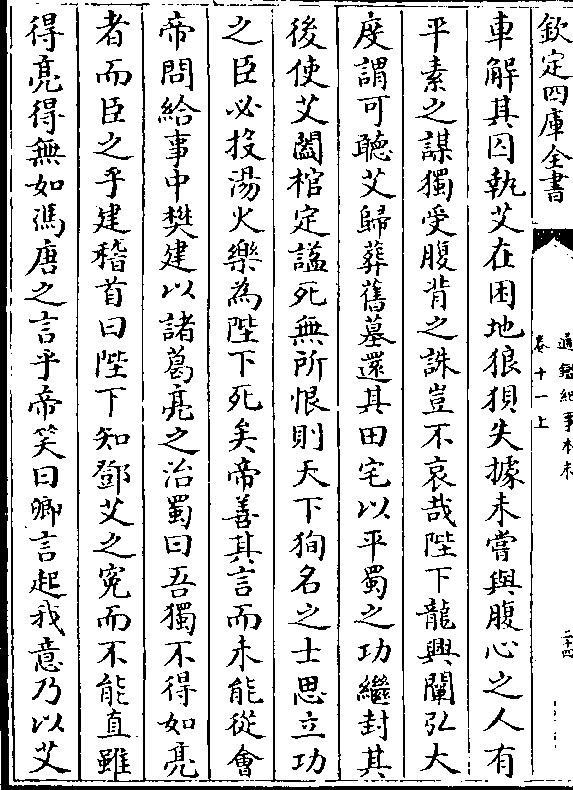 欽定四庫全書
通鑑紀事本末
卷十一上
二十四
車解其囚執艾在困地狼狽失據未嘗與腹心之人有
平素之謀獨受腹背之誅豈不哀哉陛下龍興闡弘大
度謂可聽艾歸葬舊墓還其田宅以平蜀之功繼封其
後使艾闔棺定諡死無所恨則天下狥名之士思立功
之臣必投湯火樂為陛下死矣帝善其言而未能從會
帝問給事中樊建以諸葛亮之治蜀曰吾獨不得如亮
者而臣之乎建稽首曰陛下知鄧艾之寃而不能直雖
得亮得無如馮唐之言乎帝笑曰卿言起我意乃以艾